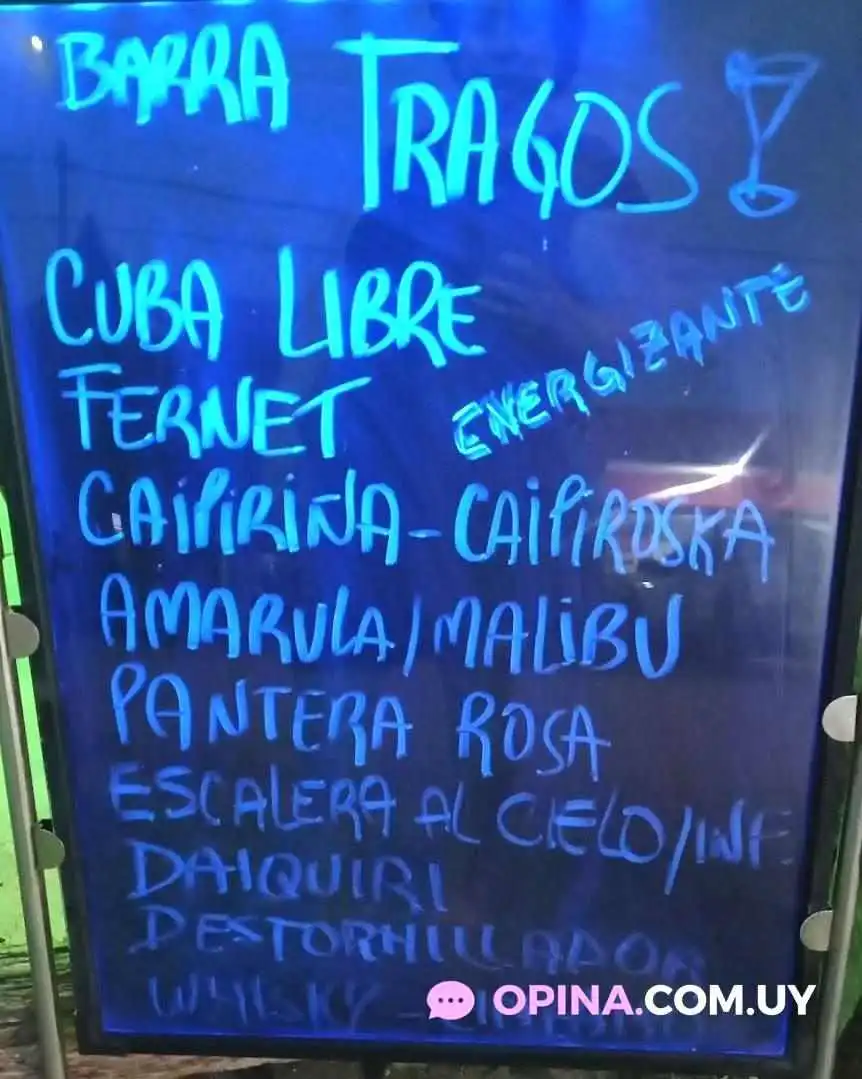 BARRA TRAGOS
CUBA LIBRE
ENERGIZANTE
FERNET
CAIPIRIÑA - CAIPIROSKA
AMARULA / MALIBU
PANTERA ROSA
ESCALERA AL CIELO / INF
DAIQUIRI
DESTORNILLADOR
WHISKY -
OPINA.COM.UY